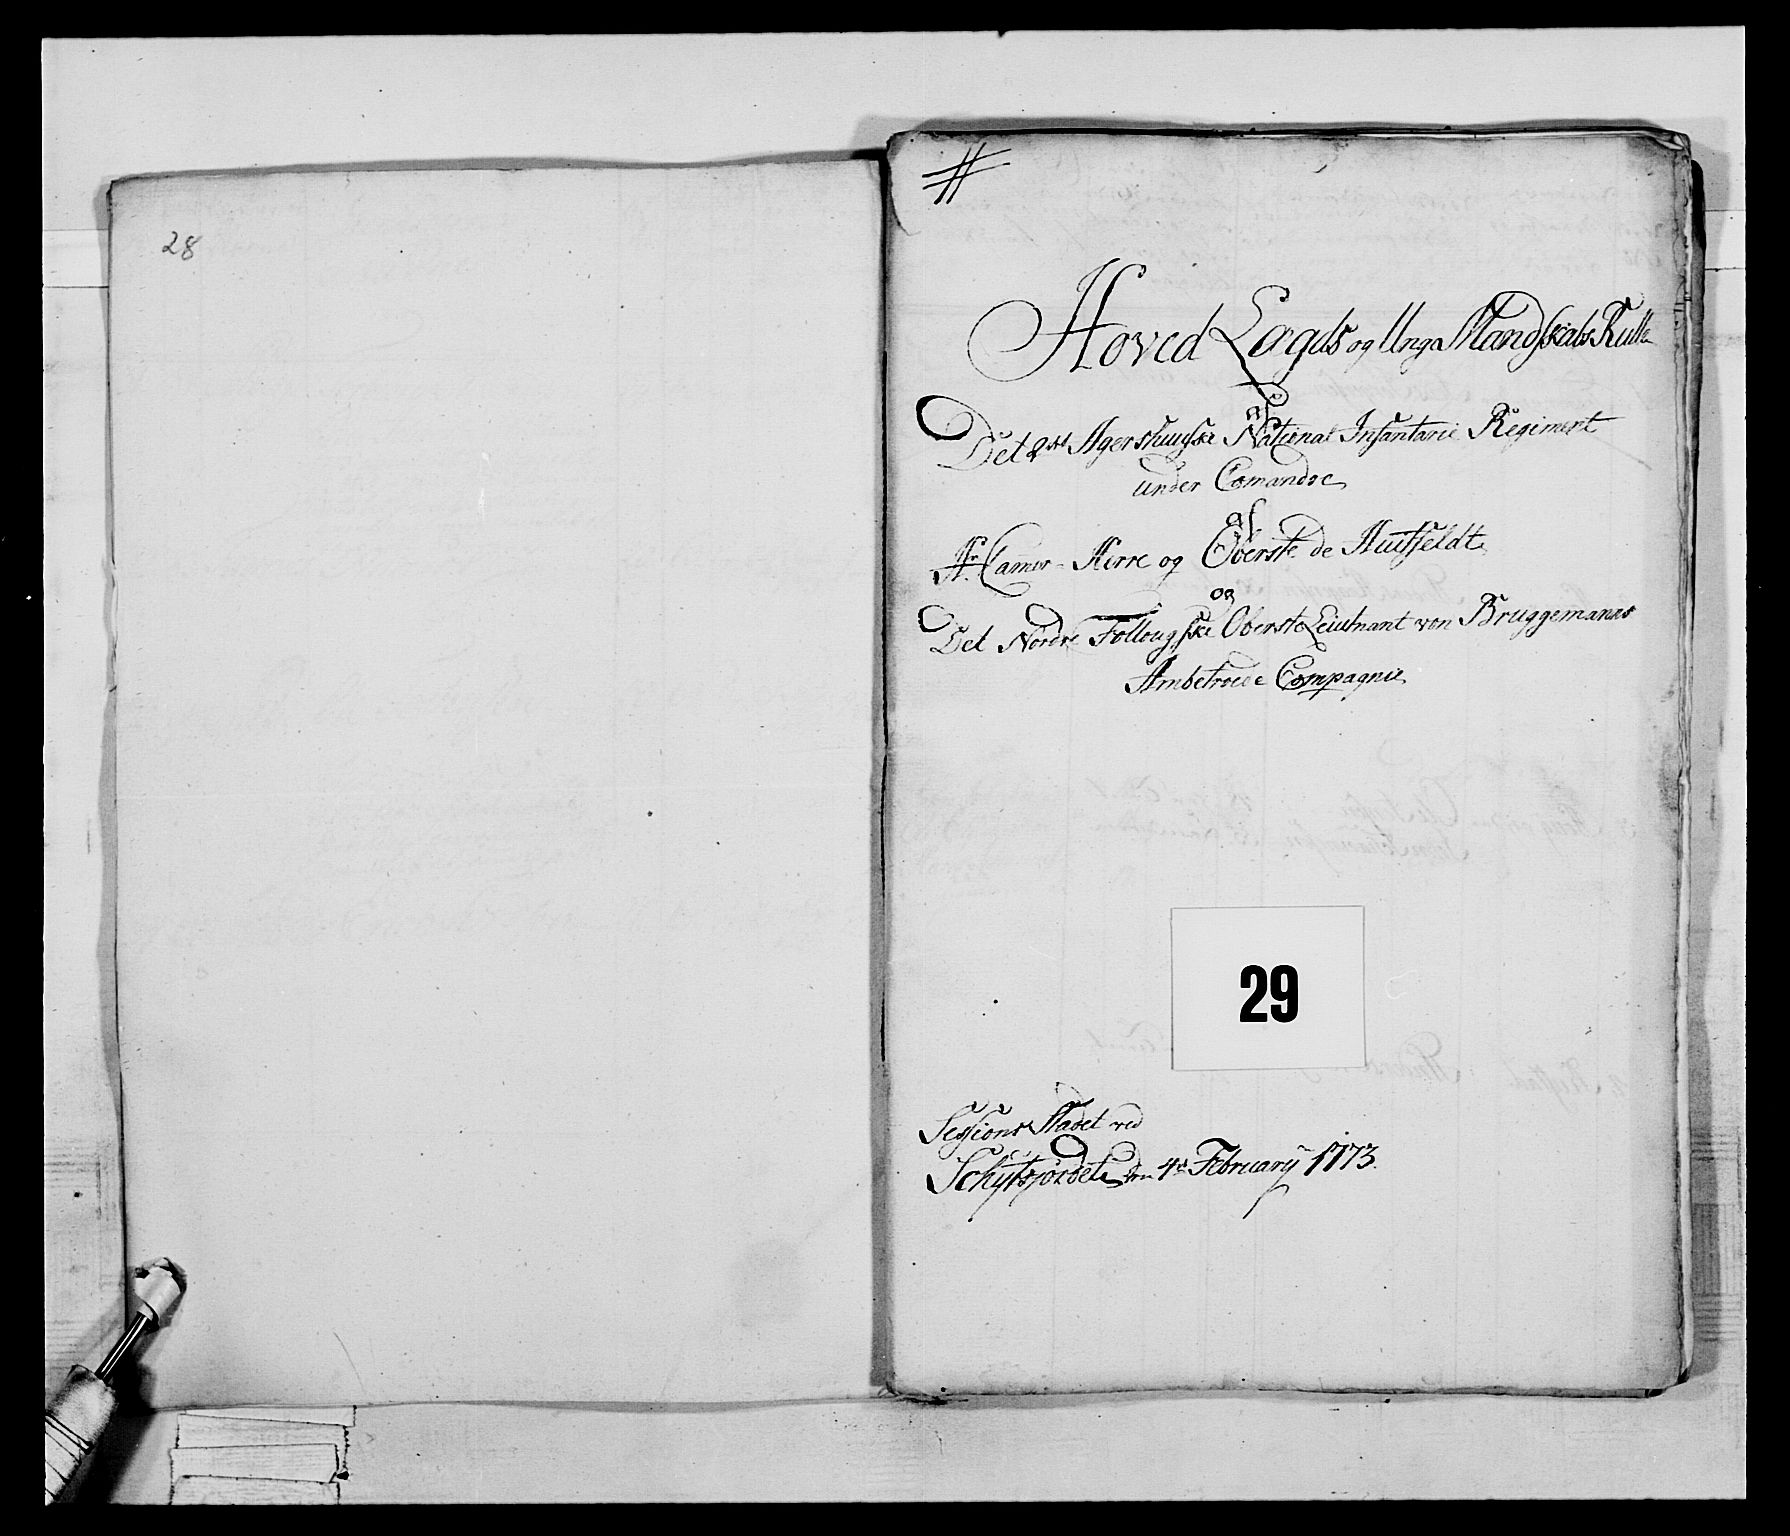 28
Hoved Lægds og Unge Mandskabs Rulle
af
Det 2det Agershuuske National Infanterie Regiment
under Comandoe
af
Hr. Camer-Herre og Oberste de Huitfeldt
og
Det Nordre Follougske Oberste Leiutnant von Bruggemanns
Anbetroede Compagnie
29
Sessions Stædet ved
Schytsjordet den 4de February 1773.